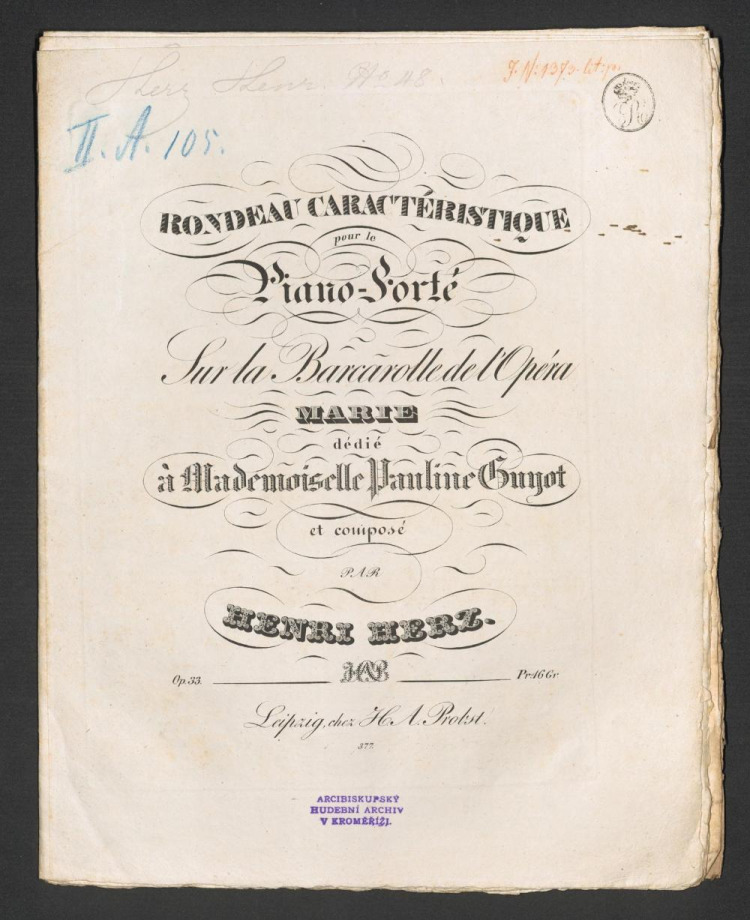 Herz Henri. No 48.
II. A. 105.
RONDEAU CARACTÉRISTIQUE
pour le
Piano-Forté
Sur la Barcarolle de l'Opéra
MARIE
dédié
à Mademoiselle Pauline Guyot
et composé
PAR
HENRI HERZ.
HAP
Op. 33. Pr. 16 Gr
Leipzig, chez H. A. Probst.
377.
ARCIBISKUPSKÝ
HUDEBNÍ ARCHIV
V KROMĚŘÍŽI.